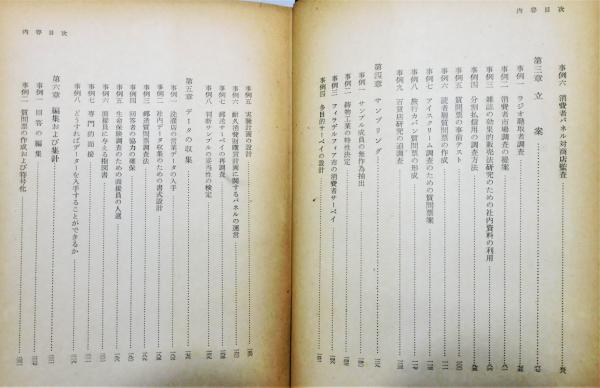 内容目次
事例六 消費者パネル対商店監査
第三章 立案
事例一 ラジオ聴取者調査
事例二 消費者行動調査の提案
事例三 雑誌の効果的販売法研究のための社内資料の利用
事例四 分割払信用の調査方法
事例五 質問票の事前テスト
事例六 読者層質問票の作成
事例七 アイスクリーム調査のための質問票案
事例八 旅行カバン質問票の形成
事例九 百貨店研究の追調査
第四章 サンプリング
事例一 サンプル成員の無作為抽出
事例二 鋳物工業の特性決定
事例三 フィラデルフィア市の消費者サーベイ
事例四 多目的サーベイの設計
内容目次
事例五 実験計画の設計
事例六 耐久消費財購買計画に関するパネルの運営
事例七 郵送サーベイの再調査
事例八 判断サンプルの妥当性の検定
第五章 データの収集
事例一 洗濯店の営業データの入手
事例二 社内データ収集のための書式設計
事例三 郵送質問票調査法
事例四 回答者の協力の確保
事例五 生命保険調査のための面接員の人選
事例六 面接員に与える指図書
事例七 専門的面接
事例八 どうすればデーターを入手することができるか
第六章 編集および集計
事例一 回答の編集
事例二 質問票の作成および符号化